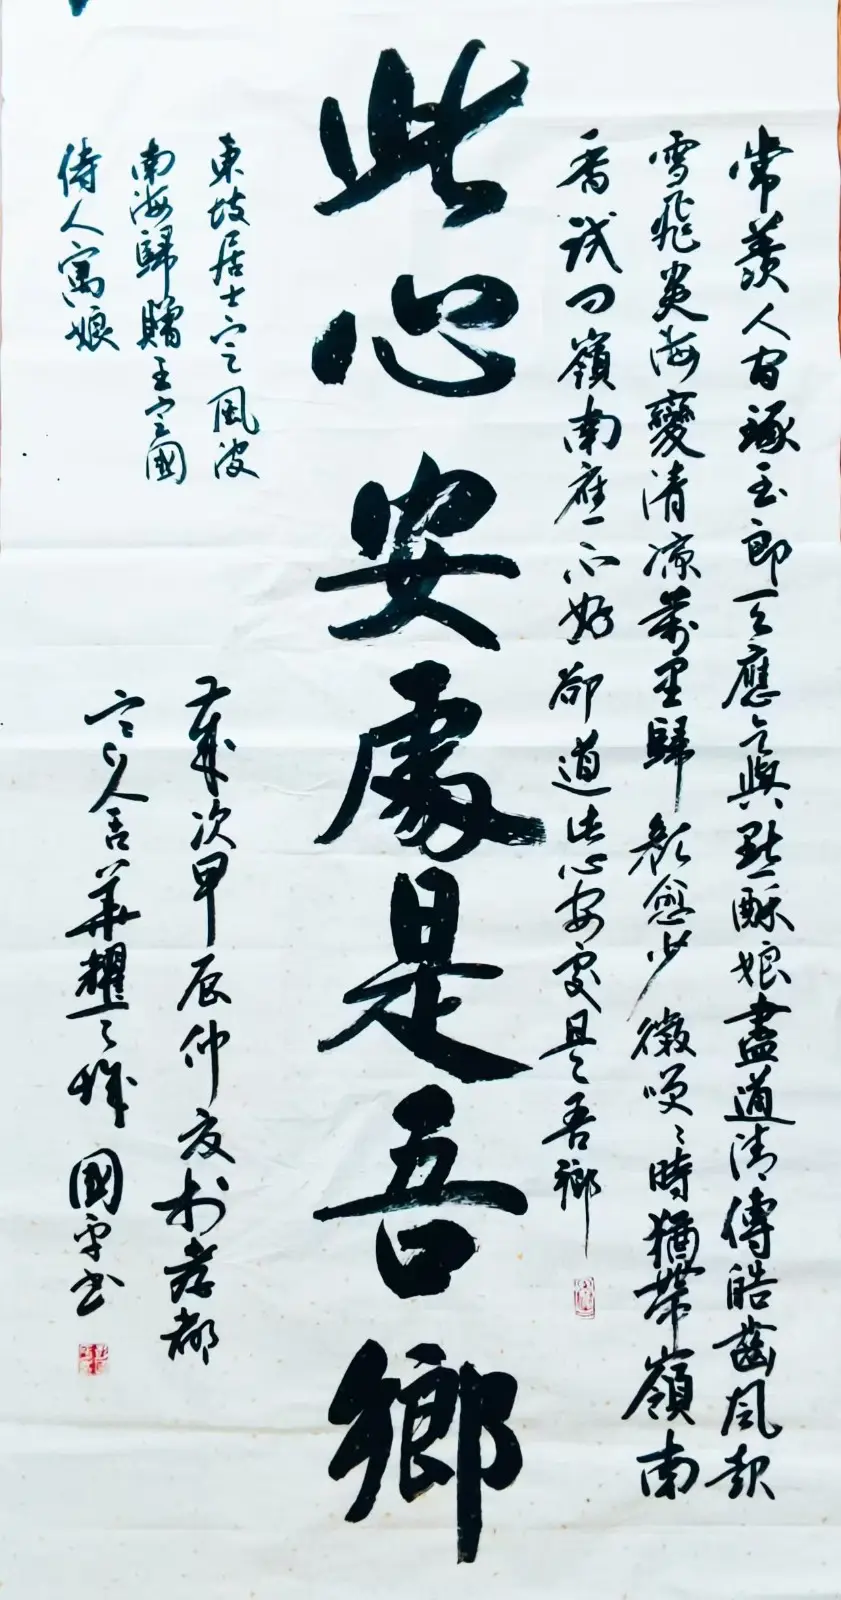 常羨人间琢玉郎天應乞與點酥娘盡道清傳皓齒風起
雪飛炎海變清凉萬里歸顏愈少微笑〻時猶帶嶺南
香試问嶺南应不好卻道此心安處是吾鄉
此心安處是吾鄉
東坡居士定風波
南海歸贈王定國
侍人寓娘
歲次甲辰仲夏於孝都
華耀之城國平书